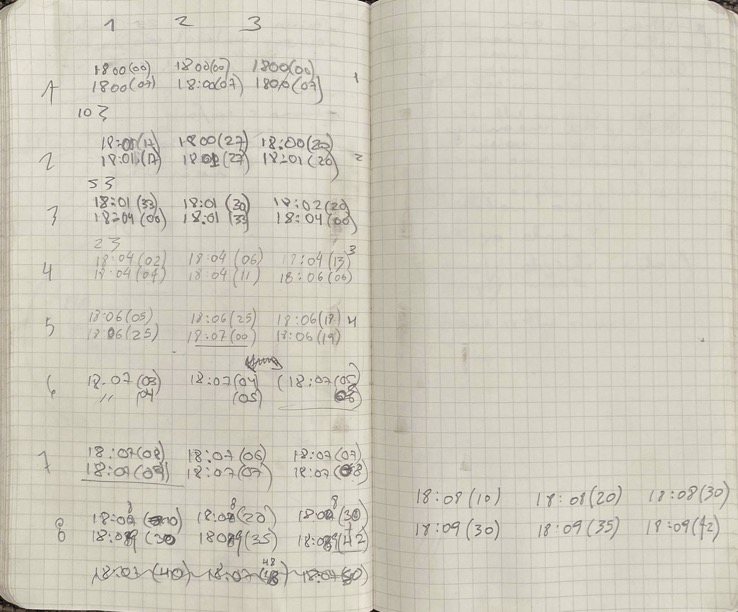 1 2 3
18 00(00) 18 00(00) 1800(00)
1 1800(07) 18:00(07) 1800(07) 1
10 3
18:00(17) 1800(27) 18:00(20)
2 18:01(17) 18 01(27) 18:01(20) 2
5 3
18:01(33) 18:01(30) 18:02(20)
3 18:04(00) 18:01(33) 18:04(00)
2 3
18:04(02) 18:04(06) 18:04(13) 3
4 18:04(04) 18 04(11) 18:06(00)
18:06(05) 18:06(25) 18:06(18) 4
5 18 06(25) 18:07(00) 18:06(19)
6 18.07(03) 18:07(04) (18:07(05)
" 04) (05) 06)
7 18:07(08) 18:07(06) 18:07(07)
18:07(09) 18:07(07) 18:07(08)
8 18:08(10) 18:08(20) 18:08(30)
18:09(30) 1809(35) 18:09(42)
18:08(10) 18:08(20) 18:08(30)
18:09(30) 18:09(35) 18:09(42)